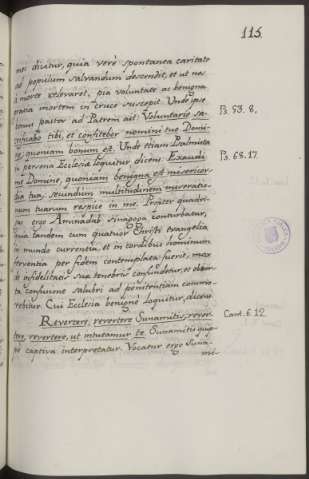 115.
nti dicitur, quia verè spontanea caritate
ad populum salvandum descendit, et ut nos
à morte liberaret, pia voluntate ac benigna
mortem in cruce suscepit. Unde ipse
bonus pastor ad Patrem ait: Voluntariè sa-
crificabo tibi, et confitebor nomini tuo Domi-
ne, quoniam bonum est. Unde etiam Psalmista
in persona Ecclesiæ loquitur, dicens: Exaudi
me Domine, quoniam benigna est misericor-
dia tua, secundum multitudinem miseratio-
num tuarum respice in me. Propter quadri-
gas ergo Aminadab synagoga conturbatur,
quia tandem cum quatuor Christi evangelia
in mundo currentia, et in cordibus hominum
ferventia per fidem contemplata fuerit, mox
de infidelitatis suæ tenebris confundetur, et
confusione salubri ad pœnitentiam commo-
vebitur. Cui Ecclesia benignè loquitur, dicens:
Revertere, revertere Sunamitis, rever-
tere, revertere, ut intueamur te. Sunamitis quip-
pe captiva interpretatur. Vocatur ergo Suna-
mi-
Ps. 53. 8.
Ps. 68. 17.
Cant. 6. 12.